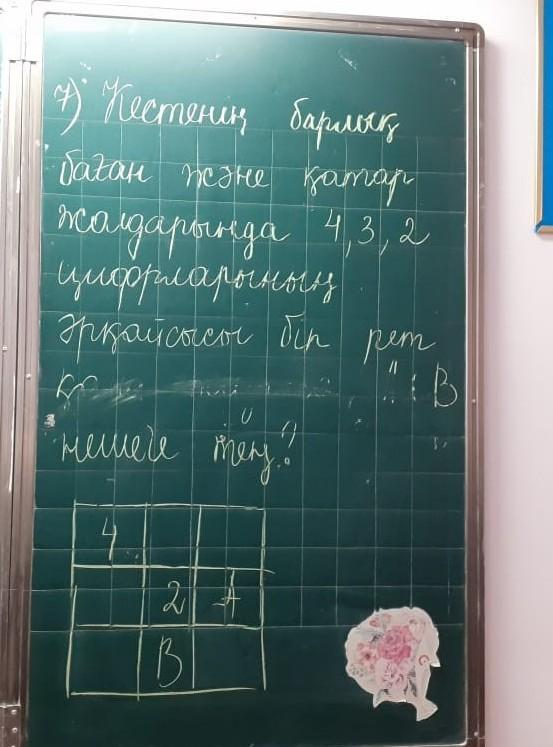 7) Кестенің барлық
баған және қатар
жолдарында 4, 3, 2
цифрларының
әрқайсысы бір рет
В
нешеге тең?
4
2 А
В